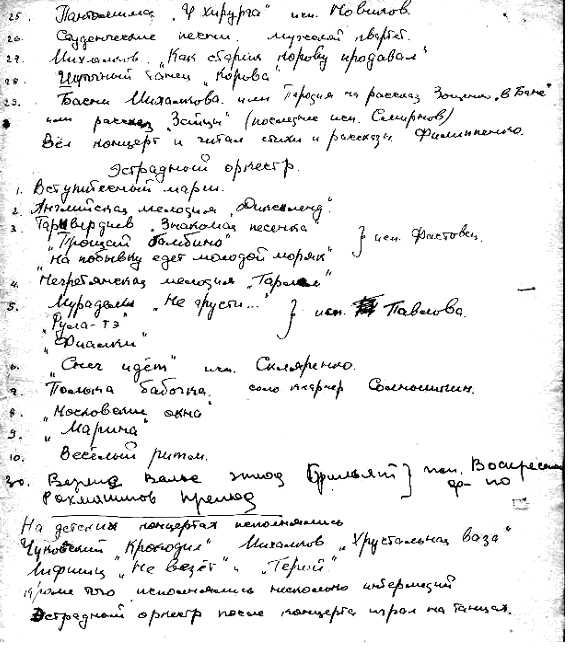 25. Пантомима "У хирурга" исп. Новиков.
26. Студенческие песни. мужской квартет.
27. Михалков. "Как старик корову продавал"
28. Шуточный танец "Корова"
29. Басни Михалкова. или Пародия на рассказ Зощенко "В бане"
или рассказ "Зайцы" (последнее исп. Смирнов)
Вёл концерт и читал стихи и рассказы Филиппенко.
Эстрадный оркестр.
1. Вступительный марш.
2. Английская мелодия "Диксиленд".
3. Таривердиев "Знакомая песенка"
"Прощай Голубино" } исп. Фастовец.
"На побывку едет молодой моряк"
4. Негретянская мелодия
5. Мурадели "Не грусти..."
"Рула-тэ" } исп. Павлова.
"Фиалки"
6. "Снег идёт" исп. Скляренко.
7. Полька бабочка. соло
8. "Московские окна"
9. "Марина"
10. Весёлый ритм.
30. вальс этюд } исп.
Рахманинов прелюд
На детских концертах исполнялись
Чуковский "Крокодил" Михалков "Хрустальная ваза"
"Не везёт" и "Герой"
кроме того исполнялись несколько интермедий
Эстрадный оркестр после концерта играл на танцах.